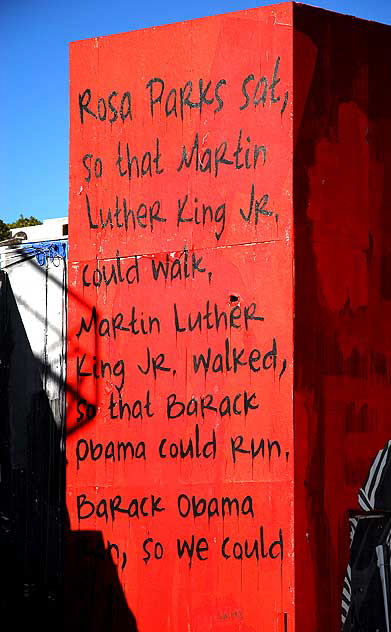 Rosa Parks sat,
so that Martin
Luther King JR.
could walk.
Martin Luther
King JR. walked,
so that Barack
Obama could run.
Barack Obama
ran, so we could